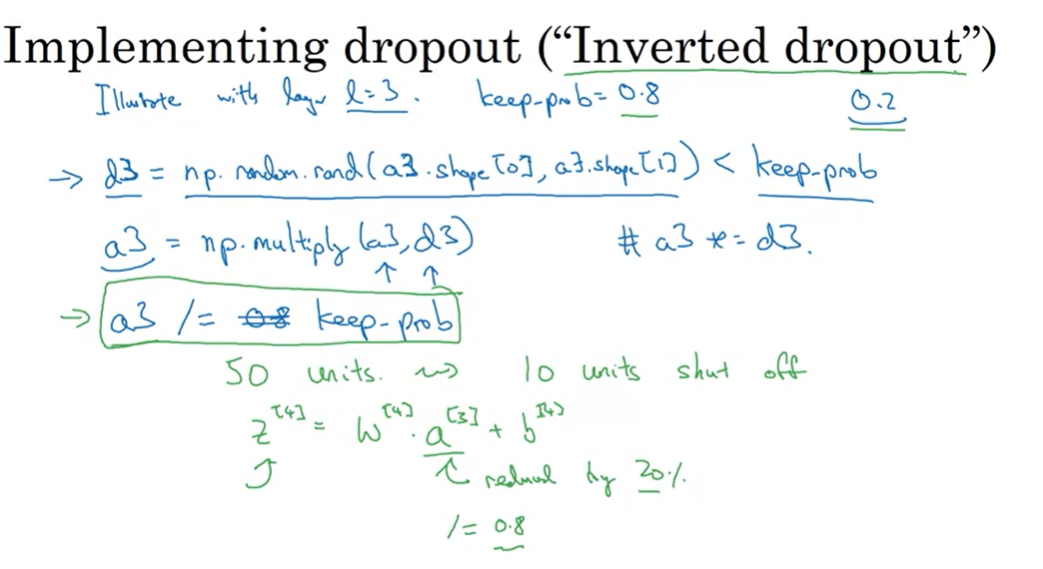 Implementing dropout (“Inverted dropout”)
Illustrate with layer l=3. keep-prob= 0.8 0.2
→ d3 = np.random.rand(a3.shape[0], a3.shape[1]) < keep-prob
a3 = np.multiply(a3,d3) # a3 *= d3.
→ a3 /= 0.8 keep-prob
50 units. ⇝ 10 units shut off
z[4] = W[4] · a[3] + b[4]
reduced by 20%.
/= 0.8